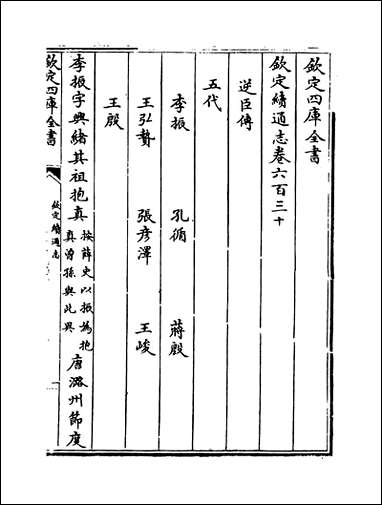 欽定四庫全書
欽定續通志卷六百三十
逆臣傳
五代
李振 孔循 蔣殷
王弘贄 張彥澤 王峻
王殷
李振字興緒其祖抱真按薛史以振為抱真曽孫與此異唐潞州節度
欽定四庫全書
欽定續通志